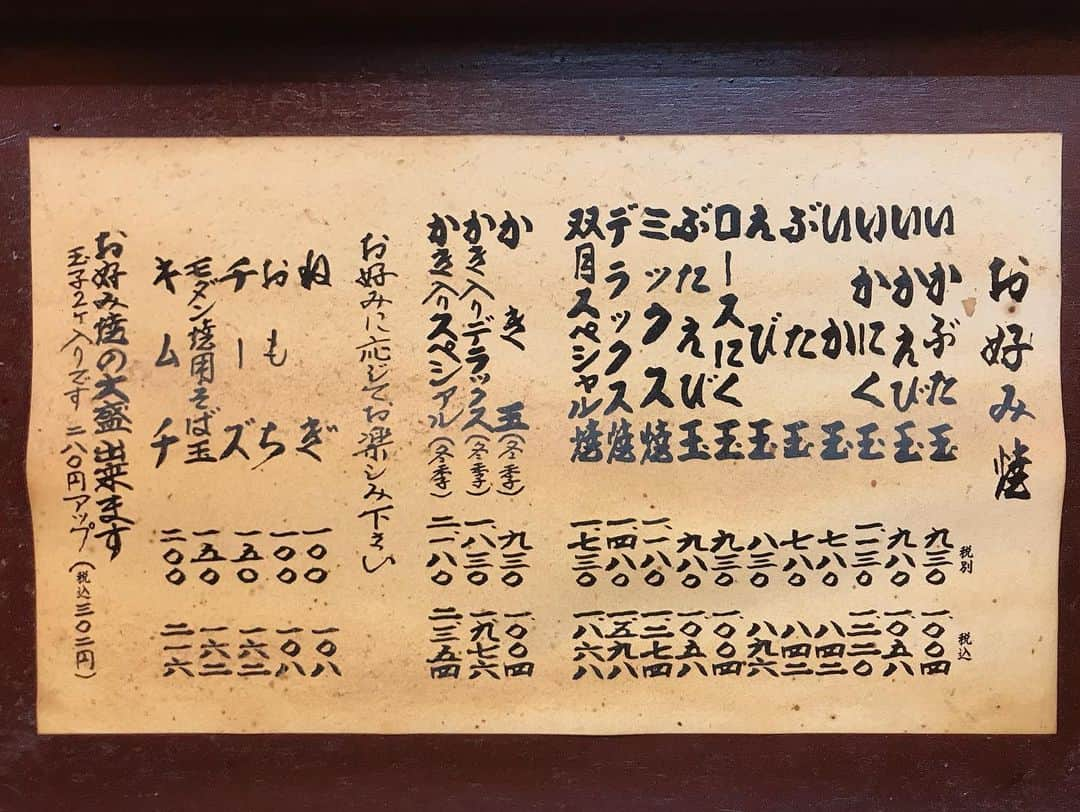 お好み焼
税別 税込
いかぶた玉 九三〇 一、〇〇四
いかえび玉 九八〇 一、〇五八
いかにく玉 一、一三〇 一、二二〇
いか玉 七八〇 八四二
ぶた玉 七八〇 八四二
えび玉 八三〇 八九六
ロースにく玉 九三〇 一、〇〇四
ぶたえび玉 九八〇 一、〇五八
ミックス焼 一、一八〇 一、二七四
デラックス焼 一、四八〇 一、五九八
双月スペシャル焼 一、七三〇 一、八六八
かき玉(冬季) 九三〇 一、〇〇四
かき入りデラックス(冬季) 一、八三〇 一、九七六
かき入りスペシアル(冬季) 二、一八〇 二、三五四
お好みに応じてお楽しみ下さい
ねぎ 一〇〇 一〇八
おもち 一〇〇 一〇八
チーズ 一五〇 一六二
モダン焼用そば玉 一五〇 一六二
キムチ 二〇〇 二一六
お好み焼の大盛出来ます
玉子2ヶ入りです 二八〇円アップ(税込三〇二円)